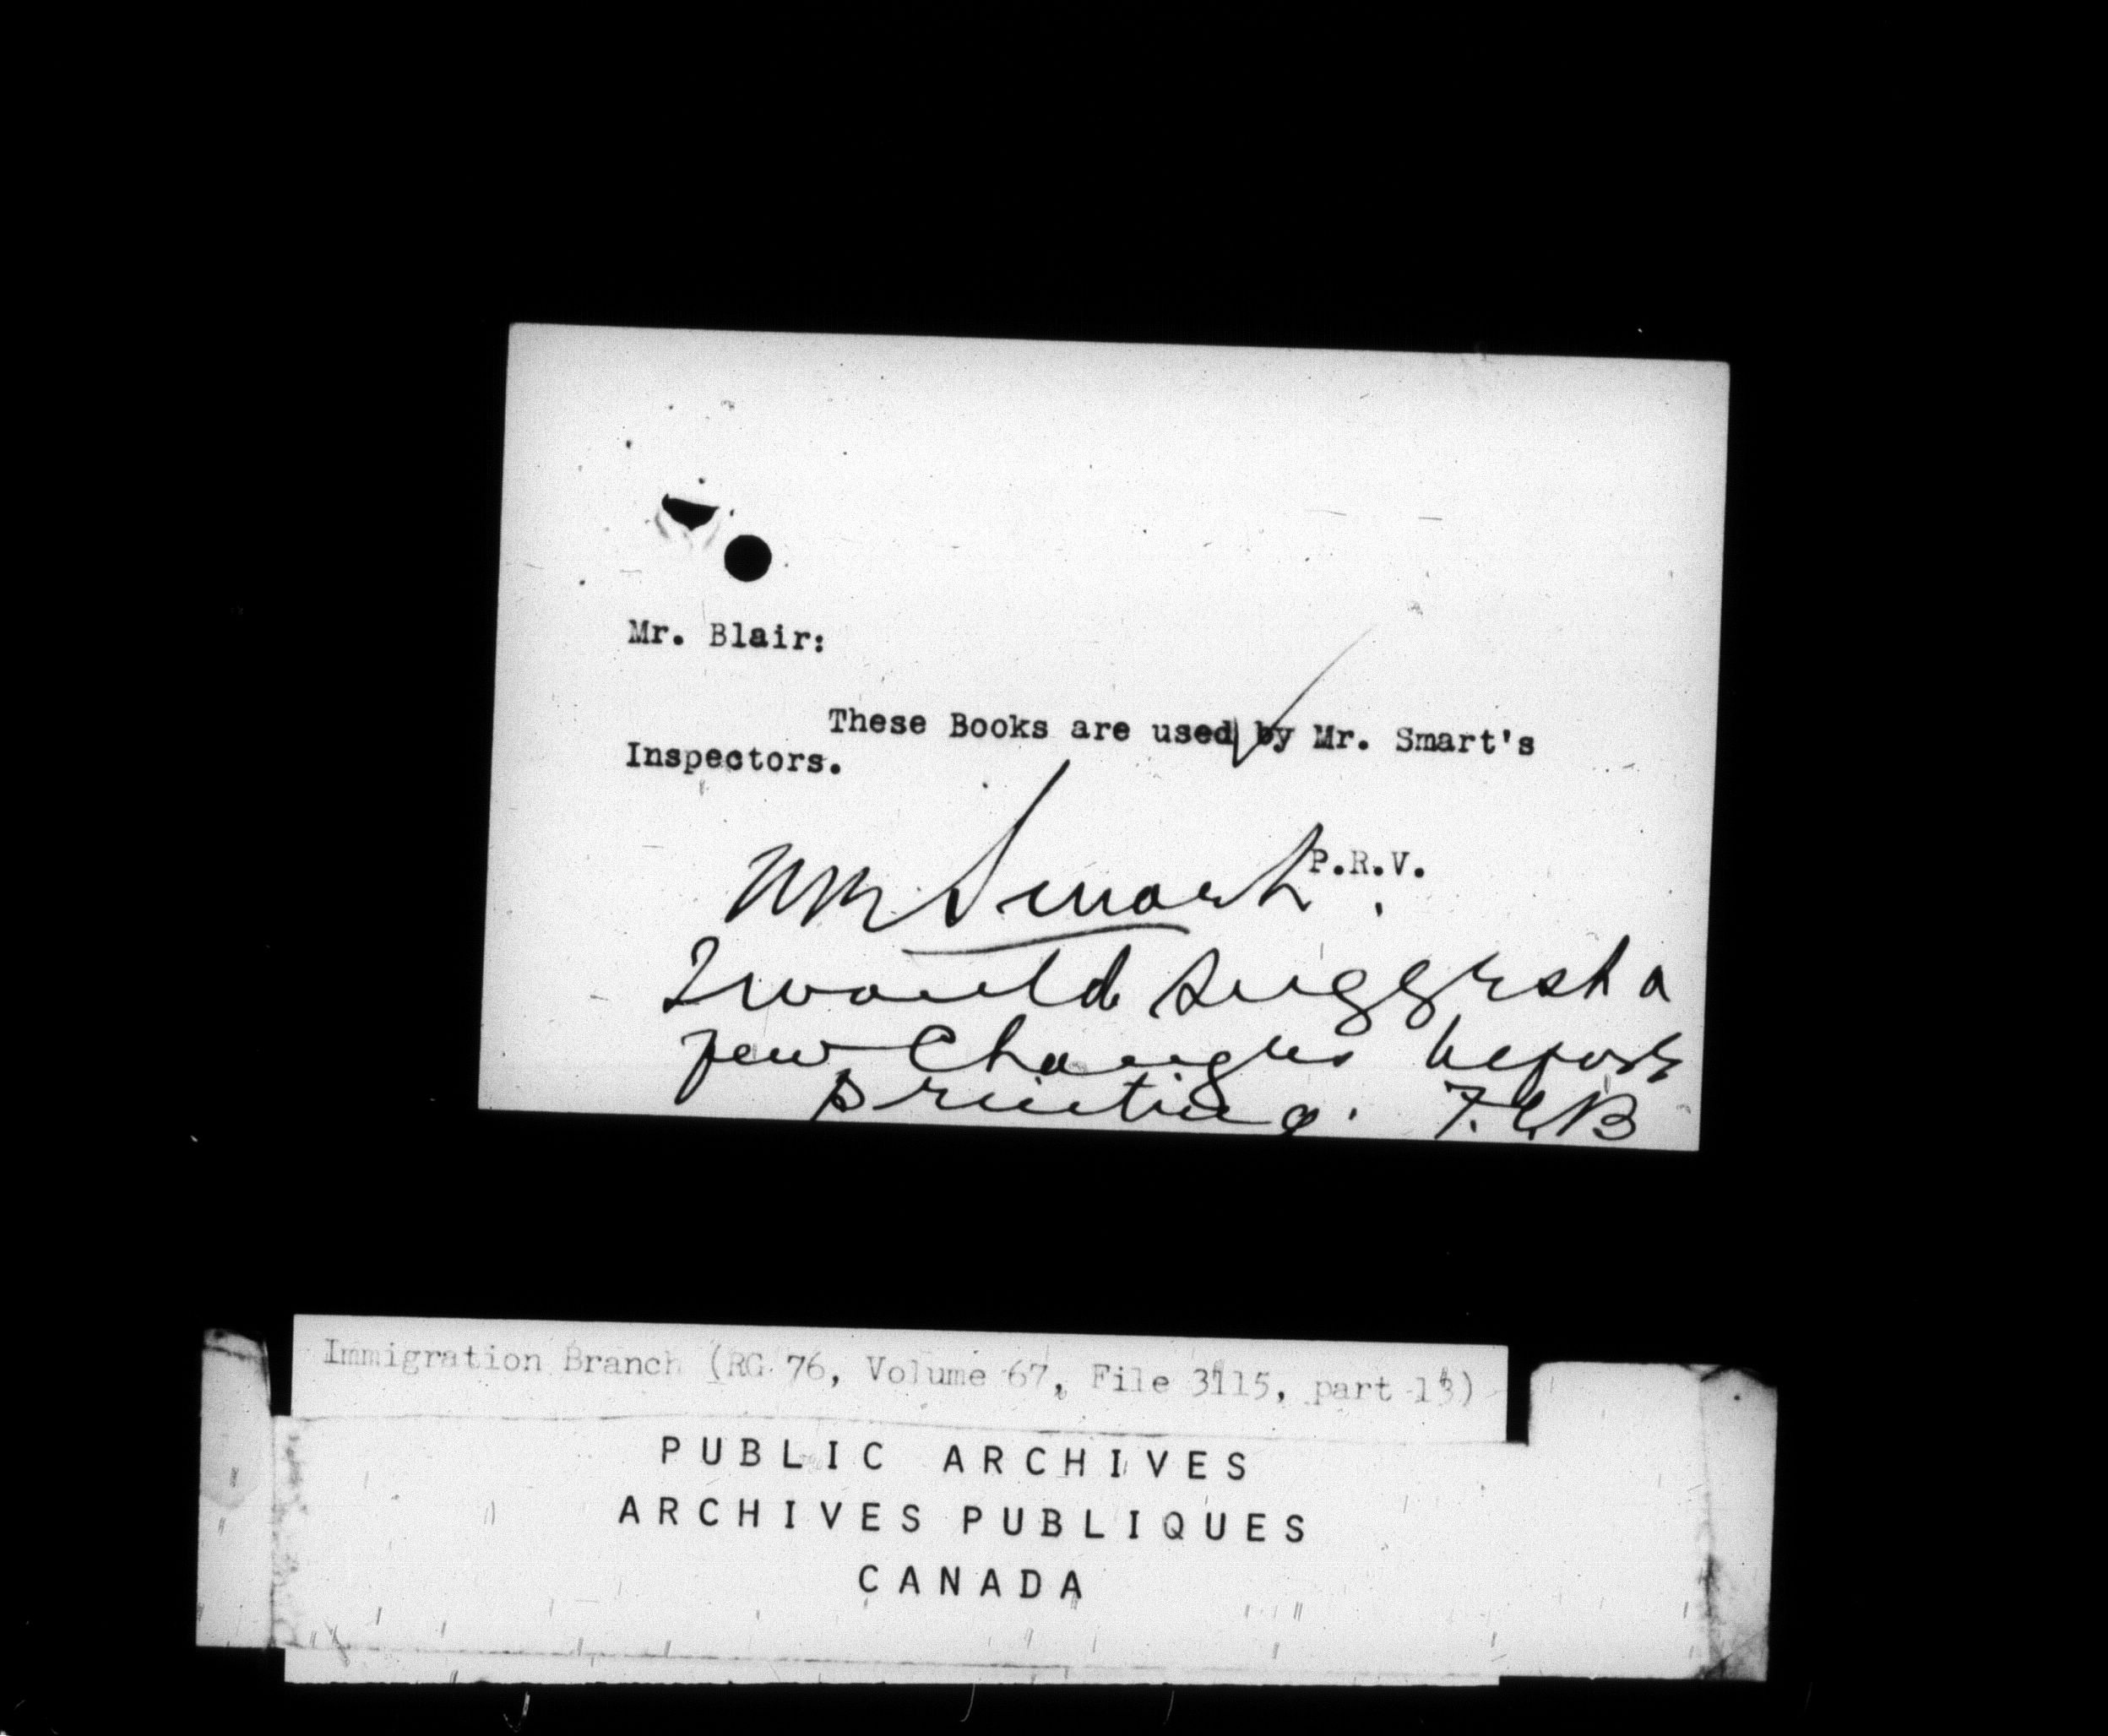 Mr. Blair:
These Books are used by Mr. Smart's
Inspectors.
P.R.V.
Mr Smart.
I would suggest a
few Changes before
printing. F.C.B
Immigration Branch (RG 76, Volume 67, File 3115, part 13)
PUBLIC ARCHIVES
ARCHIVES PUBLIQUES
CANADA